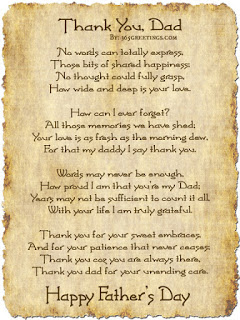 Thank You, Dad
By: 365greetings.com
No words can totally express,
Those bits of shared happiness;
No thought could fully grasp,
How wide and deep is your love.
How can I ever forget?
All those memories we have shed;
Your love is as fresh as the morning dew,
For that my daddy I say thank you.
Words may never be enough,
How proud I am that you're my Dad;
Years may not be sufficient to count it all,
With your life I am truly grateful.
Thank you for your sweet embraces,
And for your patience that never ceases;
Thank you coz you are always there,
Thank you dad for your unending care.
Happy Father's Day